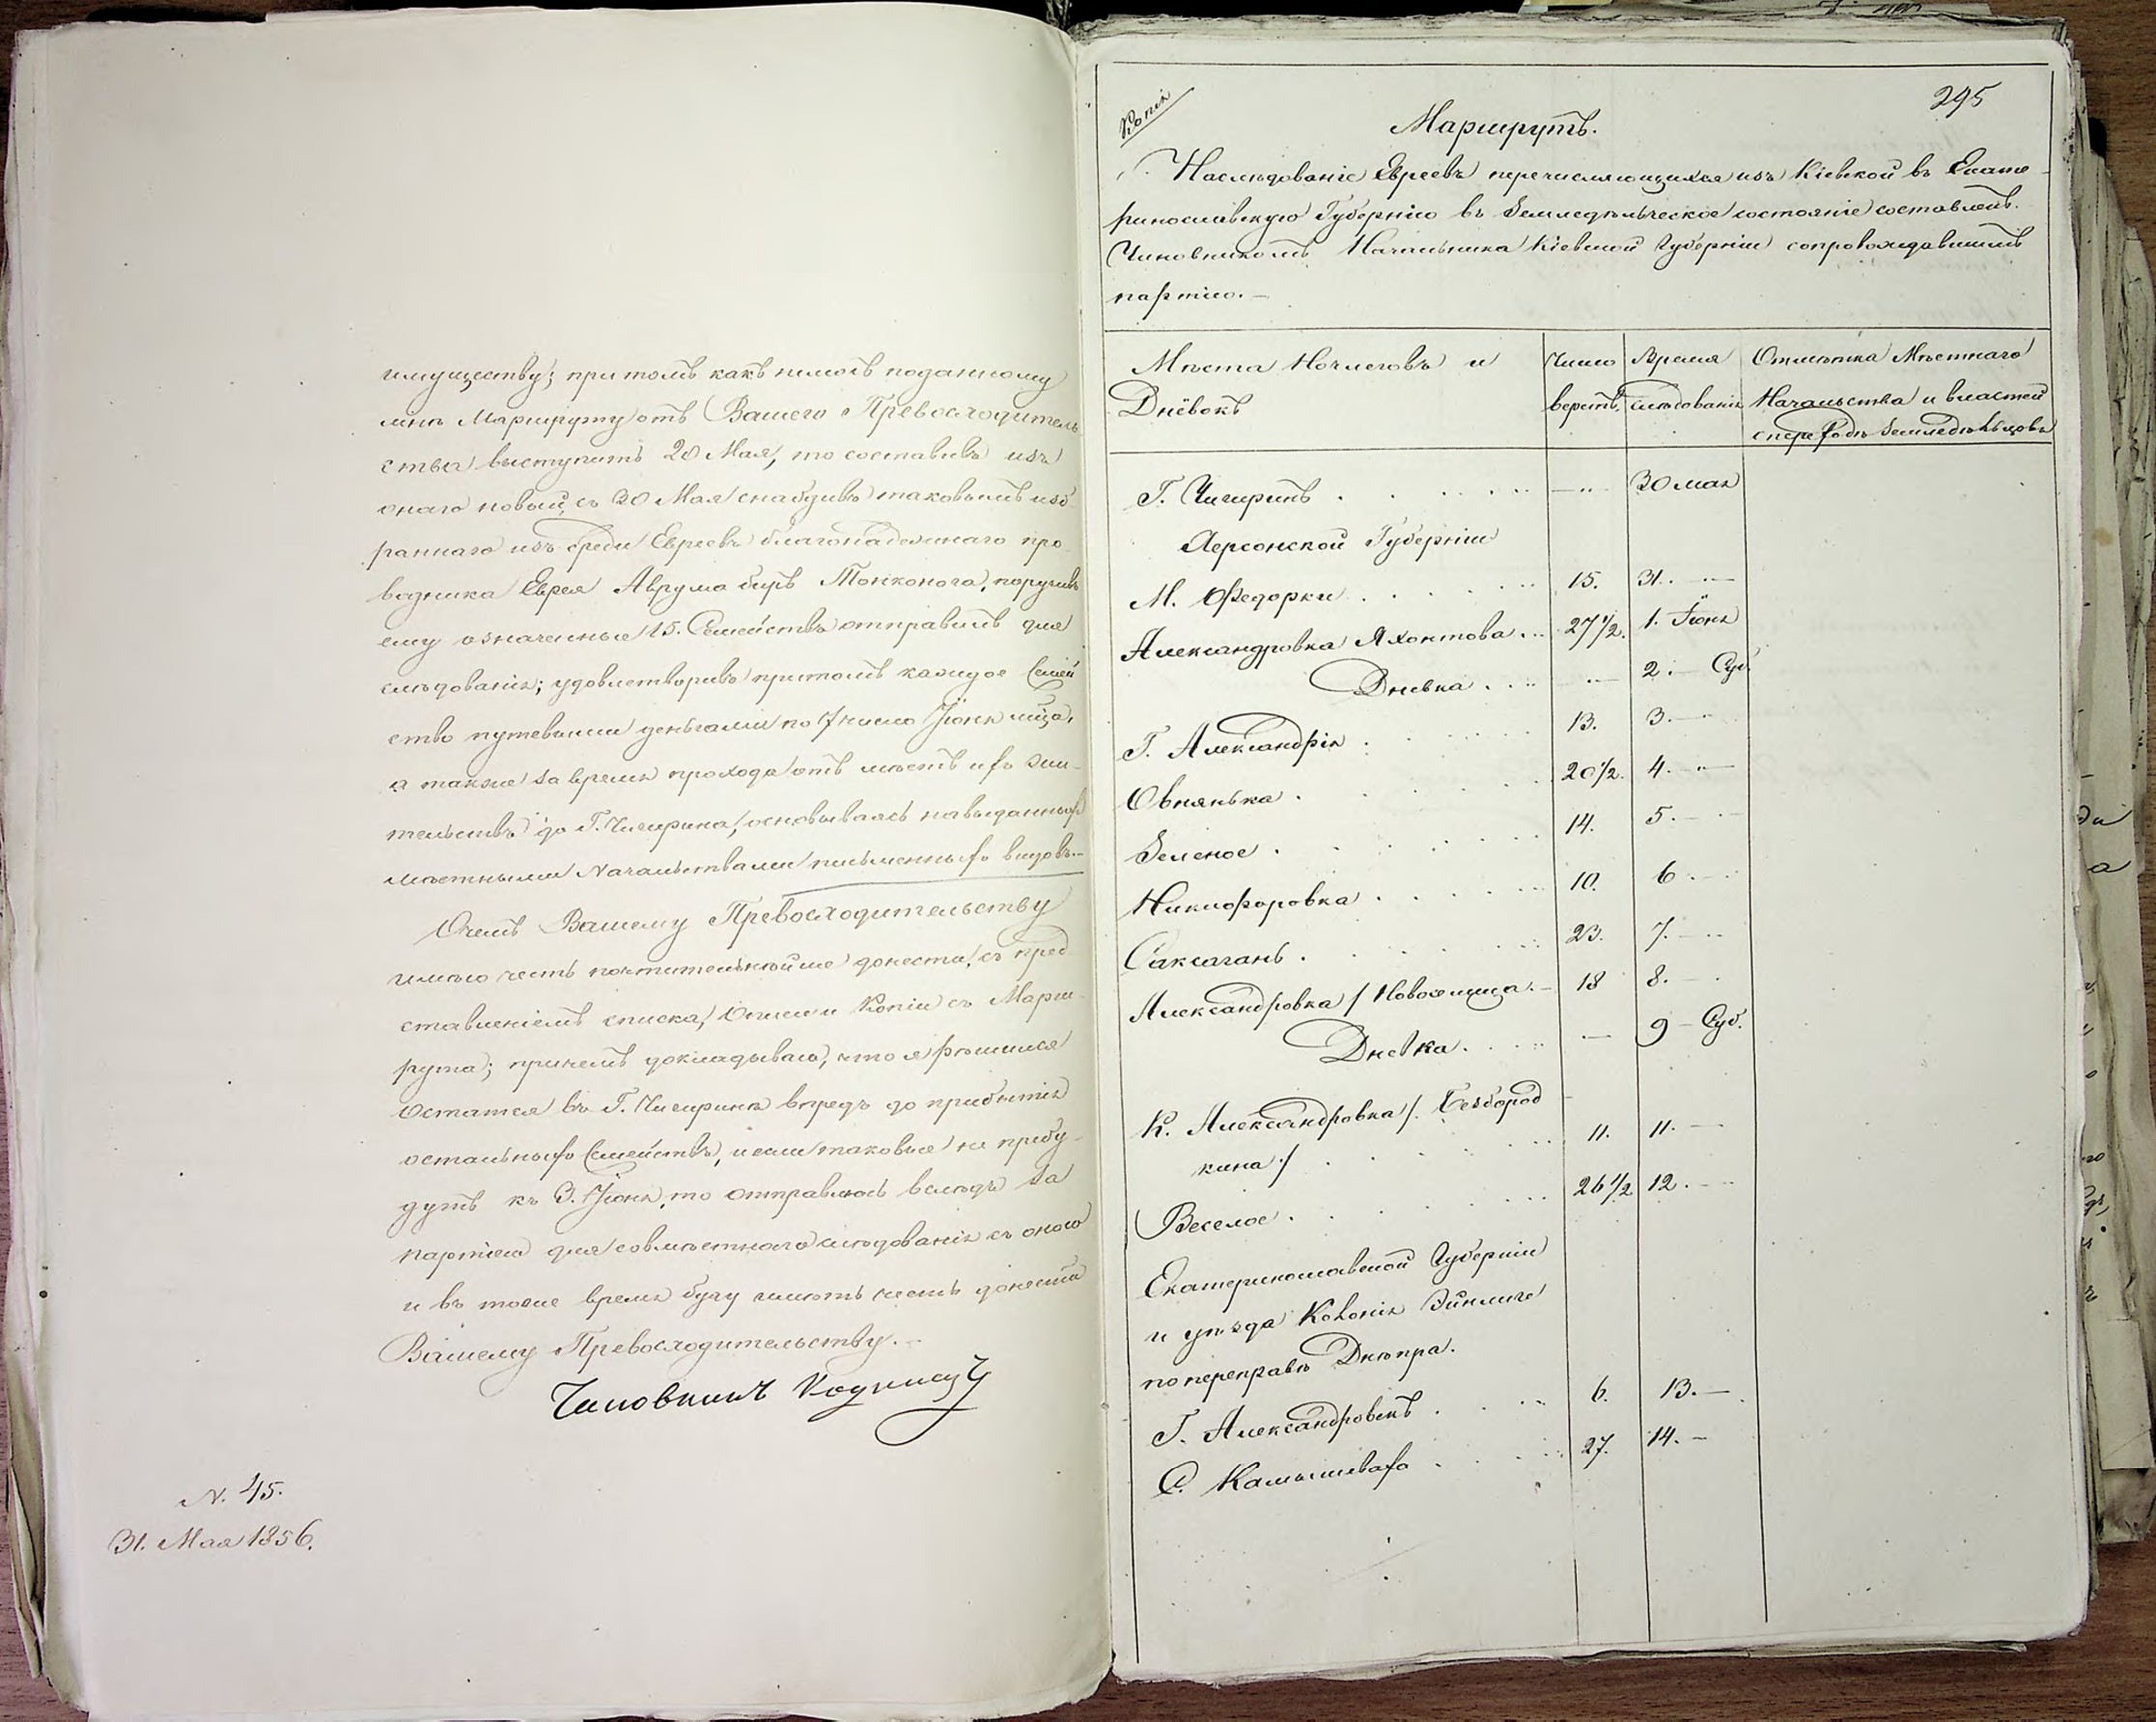 имуществу; при томъ какъ по
мнѣ Маршруту отъ Вашего Превосходитель
ства выступить 20 Мая, то составивъ изъ
онаго новый, съ 30 Мая снабдивъ таковымъ изб
раннаго изъ среди Евреевъ благонадежнаго про
водника Еврея Аврума Тонконога, поручивъ
ему означенные 15. Семействъ отправилъ для
слѣдованія; удовлетворивъ притомъ каждое Семей
ство путевыми деньгами по 7 число Іюня м-ца,
а также за время прохода отъ мѣстъ ихъ жи
тельствъ до Г. Чигирина, основываясь на выданныхъ
мѣстными Начальствами письменныхъ видовъ.—
Очемъ Вашему Превосходительству
имѣю честь почтительнѣйше донести, съ пред
ставленіемъ списка, Описи и Копіи съ Марш
рута; причемъ докладываю, что я рѣшился
остатся въ Г. Чигиринѣ впредь до прибытія
остальныхъ Семействъ, и если таковые не прибу
дутъ къ 3. Іюня, то отправлюсь вслѣдъ за
партіею для совмѣстнаго слѣдованія съ оною
и въ тоже время буду имѣть честь донести
Вашему Превосходительству.—
Чиновникъ
N. 45.
31. Мая 1856.
295
Копія
Маршрутъ.
Наслѣдованіе Евреевъ перечисляющихся изъ Кіевской въ Екате
ринославскую Губернію въ Земледѣльческое состояніе составленъ
Чиновникомъ Начальника Кіевской Губерніи сопровождавшимъ
партію.—
Мѣста Ночлеговъ и Дневокъ
Число верстъ
Время слѣдованія
Отмѣтка Мѣстнаго Начальства и властей
Земледѣльцовъ
Г. Чигиринъ — 30 мая
Херсонской Губерніи
М. Федорки 15. 31.
Александровка Яхонтова 27 1/2. 1. Іюня
Дневка — 2. Суб.
Г. Александрія 13. 3.
Овнянька 20 1/2. 4.
Зеленое 14. 5.
Никифоровка 10. 6.
Саксагань 23. 7.
Александровка / 18 8.
Дневка — 9 Суб.
К. Александровка /. Безбород
кина / 11. 11.
Веселое 26 1/2 12.
Екатеринославской Губерніи
и уѣзда Колонія Эйнлаге
по переправѣ Днѣпра. 6. 13.
Г. Александровскъ 27. 14.
С. Камышеваха